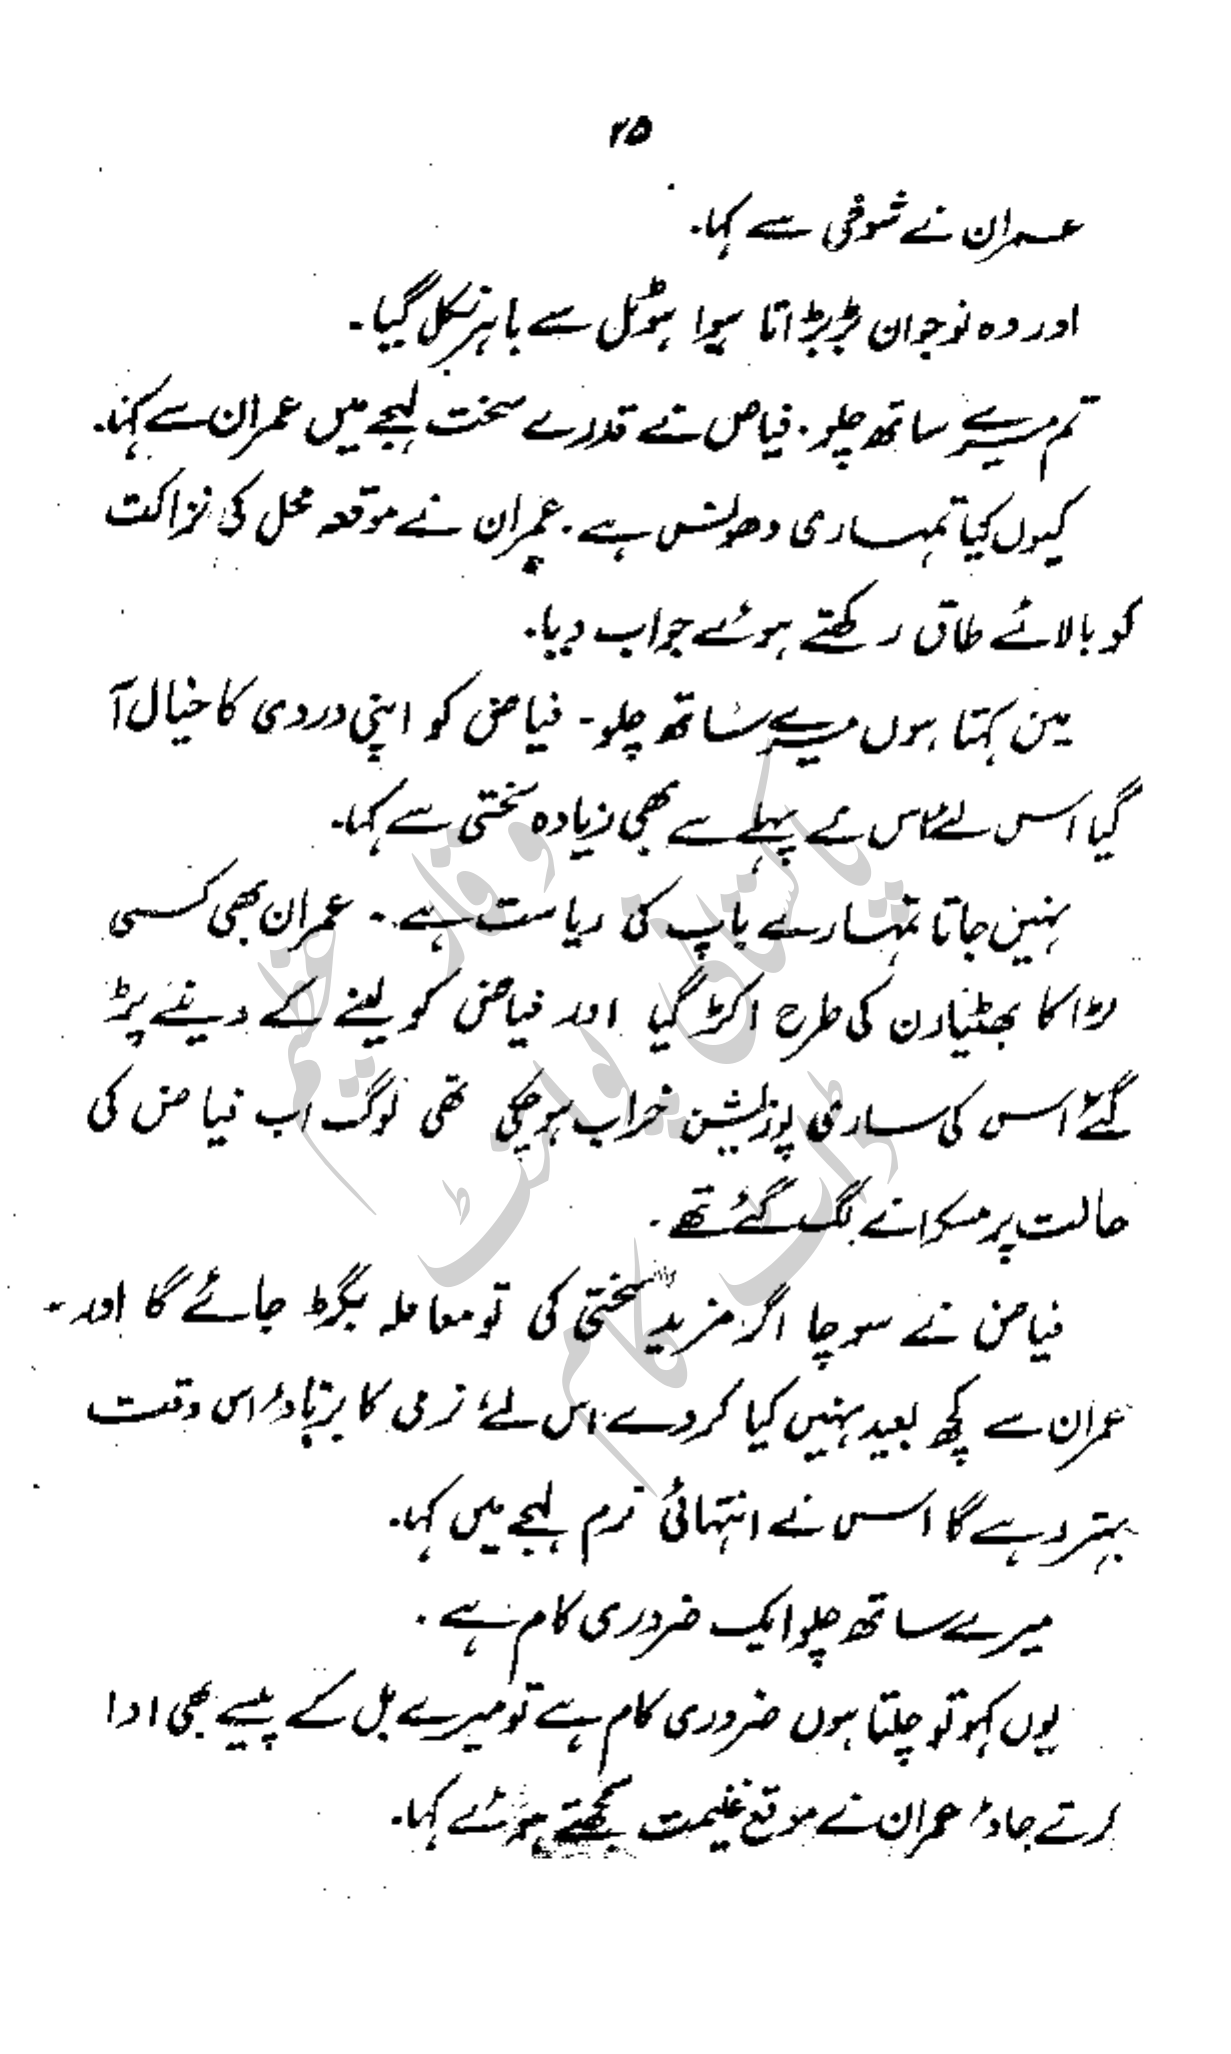 ۲۵
عمران نے شوخی سے کہا۔
اور وہ نوجوان بڑبڑاتا ہوا ہوٹل سے باہر نکل گیا۔
تم میرے ساتھ چلو۔ فیاض نے قدرے سخت لہجے میں عمران سے کہا۔
کیوں کیا تمہاری دھونس ہے۔ عمران نے موقعہ محل کی نزاکت
کو بالائے طاق رکھتے ہوئے جواب دیا۔
میں کہتا ہوں میرے ساتھ چلو۔ فیاض کو اپنی وردی کا خیال آ
گیا اس لئے اس نے پہلے سے بھی زیادہ سختی سے کہا۔
نہیں جاتا تمہارے باپ کی ریاست ہے۔ عمران بھی کسی
لڑاکا بھٹیارن کی طرح اکڑ گیا اور فیاض کو لینے کے دینے پڑ
گئے اس کی ساری پوزیشن خراب ہو چکی تھی لوگ اب فیاض کی
حالت پر مسکرانے لگ گئے تھے۔
فیاض نے سوچا اگر مزید سختی کی تو معاملہ بگڑ جائے گا اور۔
عمران سے کچھ بعید نہیں کیا کر دے اس لئے نرمی کا برتاؤ اس وقت
بہتر رہے گا اس نے انتہائی نرم لہجے میں کہا۔
میرے ساتھ چلو ایک ضروری کام ہے۔
یوں کہو تو چلتا ہوں ضروری کام ہے تو میرے بل کے پیسے بھی ادا
کرتے جاؤ عمران نے موقع غنیمت سمجھتے ہوئے کہا۔
وقار عظیم
پاکستانی پوائنٹ
ڈاٹ کام